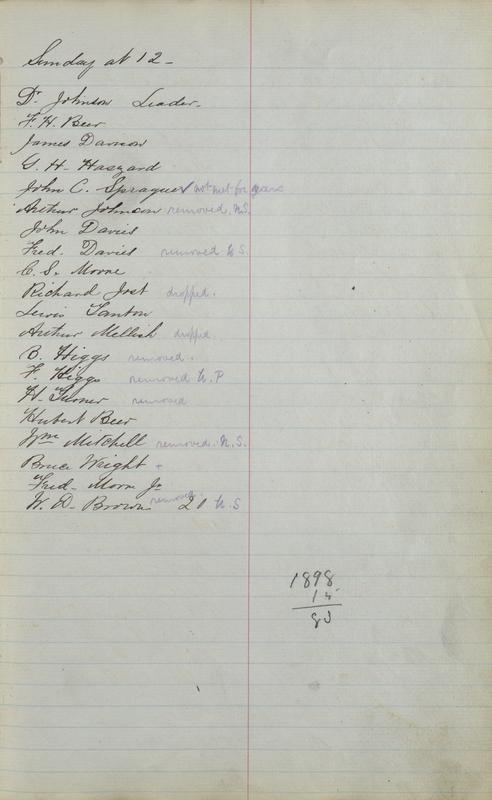 Sunday at 12 -
Dr Johnson Leader.
F. H. Beer
James Davison
G. H. Haszard
John C. Sprague ✓ not met for years
Arthur Johnson removed. N.S.
John Davies
Fred. Davies removed U.S.
C. S. Moore
Richard Jost dropped.
Lewis Tanton
Arthur Mellish dropped
B. Higgs removed.
F. Higgs removed W.P
H. Turner removed
Hubert Beer
Wm Mitchell removed. N.S.
Bruce Wright +
Fred. Moore Jr
W. D. Brown removed. 21 U.S
1898
14